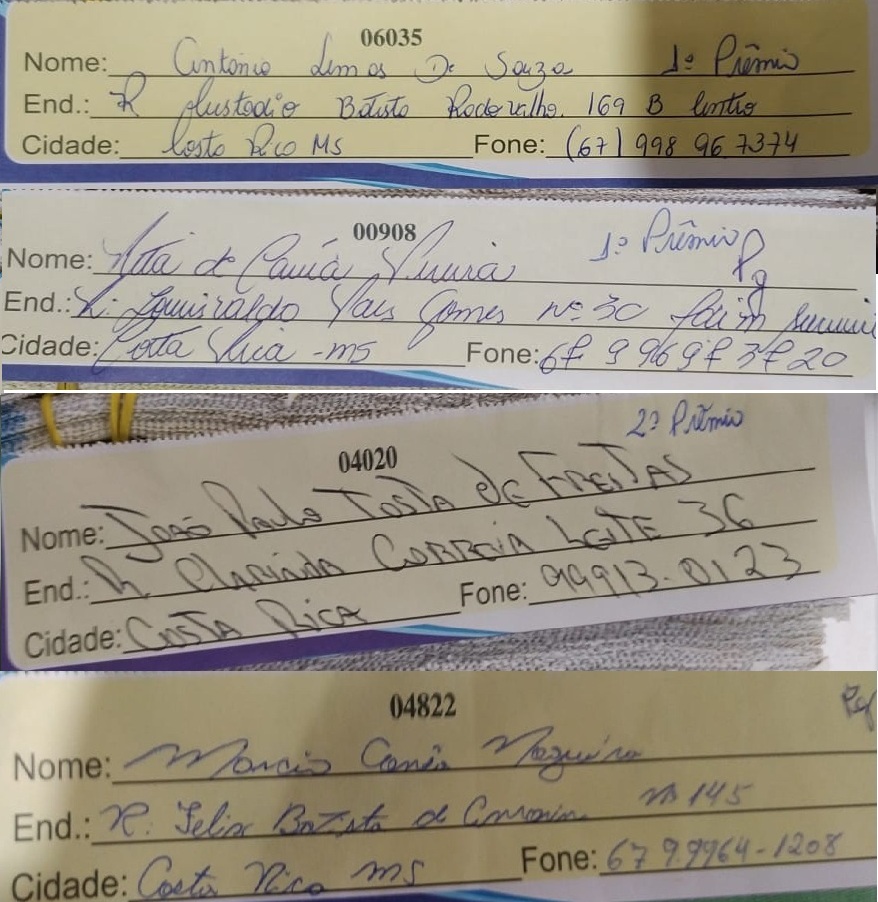 06035
Nome: Antonio Lemos De Souza 1º Prêmio
End.: R Custodio Batista Rodovalho. 169 B Centro
Cidade: Costa Rica MS Fone: (67) 998 96 7374
00908
1º Prêmio Pg
Nome: de Vieira
End.: R: Lourivaldo Pais Gomes Nº 30
Cidade: Costa Rica - MS Fone: 67 9 9697 3720
2º Prêmio
04020
Nome: João Paulo Tosta de FREITAS
End.: R CORREIA LEITE 36
Cidade: COSTA RICA Fone: 99913-0123
04822
Nome: Marcio Nogueira
End.: R: Felix Batista de Nº 145
Cidade: Costa Rica MS Fone: 67 9.9964-1208